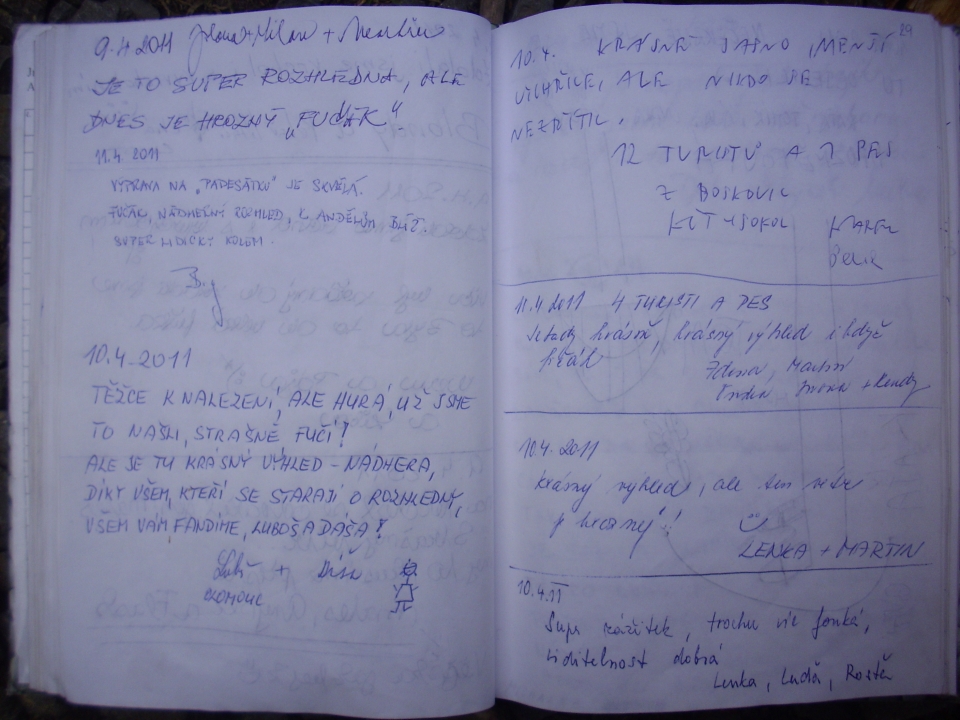 9.4 2011 Ilona + Milan + Martin
JE TO SUPER ROZHLEDNA, ALE
DNES JE HROZNÝ „FUČÁK"
11.4. 2011
VÝPRAVA NA „PADESÁTKU" JE SKVĚLÁ.
FUČÁK, NÁDHERNÝ ROZHLED, K ANDĚLŮM BLÍŽ.
SUPER LIDIČKY KOLEM.
10.4-2011
TĚŽCE K NALEZENÍ, ALE HURÁ, UŽ JSME
TO NAŠLI, STRAŠNĚ FUČÍ!
ALE JE TU KRÁSNÝ VÝHLED - NÁDHERA,
DÍKY VŠEM, KTEŘÍ SE STARAJÍ O ROZHLEDNY,
VŠEM VÁM FANDÍME, LUBOŠ A DÁŠA!
Luboš + Dáša
OLOMOUC
29
10.4. KRÁSNĚ JASNO, MENŠÍ
VICHŘICE, ALE NIKDO SE
NEZŘÍTIL.
12 TURISTŮ A 1 PES
Z BOSKOVIC
KČT SOKOL
11.4 2011 4 TURISTI A PES
krásně, krásný výhled i když
fičák
Zdena, Martin
10.4. 2011
krásný výhled, ale ten vítr
hrozný!!
LENKA + MARTIN
10.4.11
Supr zážitek, trochu víc fouká,
viditelnost dobrá
Lenka, Luďa, Rosťa